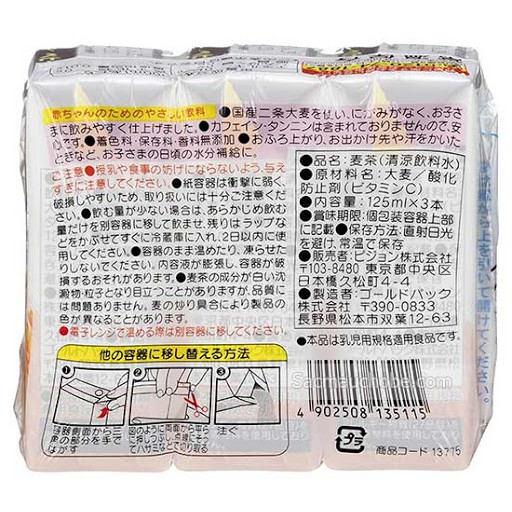 赤ちゃんのためのやさしい飲料
●国産二条大麦を使い、にがみがなく、お子さ
まに飲みやすく仕上げました。●カフェイン・タンニンは含まれておりませんので、安
心です。●着色料・保存料・香料無添加 ●おふろ上がり、お出かけ先や汗をかいた
ときなど、お子さまの日頃の水分補給に。
ご注意 ●授乳や食事の妨げにならないよう、与え
すぎに注意してください。●紙容器は衝撃に弱く、
破損しやすいため、取り扱いには十分ご注意くだ
さい。●飲む量が少ない場合は、あらかじめ飲む
量だけを別容器に移して飲ませ、残りはラップな
どをかぶせてすぐに冷蔵庫に入れ、2日以内に使
用してください。●容器のまま温めたり、凍らせた
りしないでください。内容液が膨張し、容器が破
損するおそれがあります。●麦茶の成分が白い沈
澱物・粒子となり目立つことがありますが、品質に
は問題ありません。麦のゆり具合により製品の
色が異なることがあります。
●電子レンジで温める際は別容器に移してください。
●品名:麦茶(清涼飲料水)
●原材料名:大麦/酸化
防止剤(ビタミンC)
●内容量:125ml×3本
●賞味期限:個包装容器上部
に記載 ●保存方法:直射日光
を避け、常温で保存
●販売者:ピジョン株式会社
〒103-8480 東京都中央区
日本橋久松町4-4
●製造者:ゴールドパック
株式会社 〒390-0833
長野県松本市双葉12-63
●本品は乳児用規格適用食品です。
他の容器に移し替える方法
❶ ❷ ❸
容器側面から三
角の部分を手で
はがす
図のように両面から平ら
に押しつぶし、点線にそっ
てハサミなどで切り取る
注ぐ
4 902508 135115
プラ
商品コード 13775